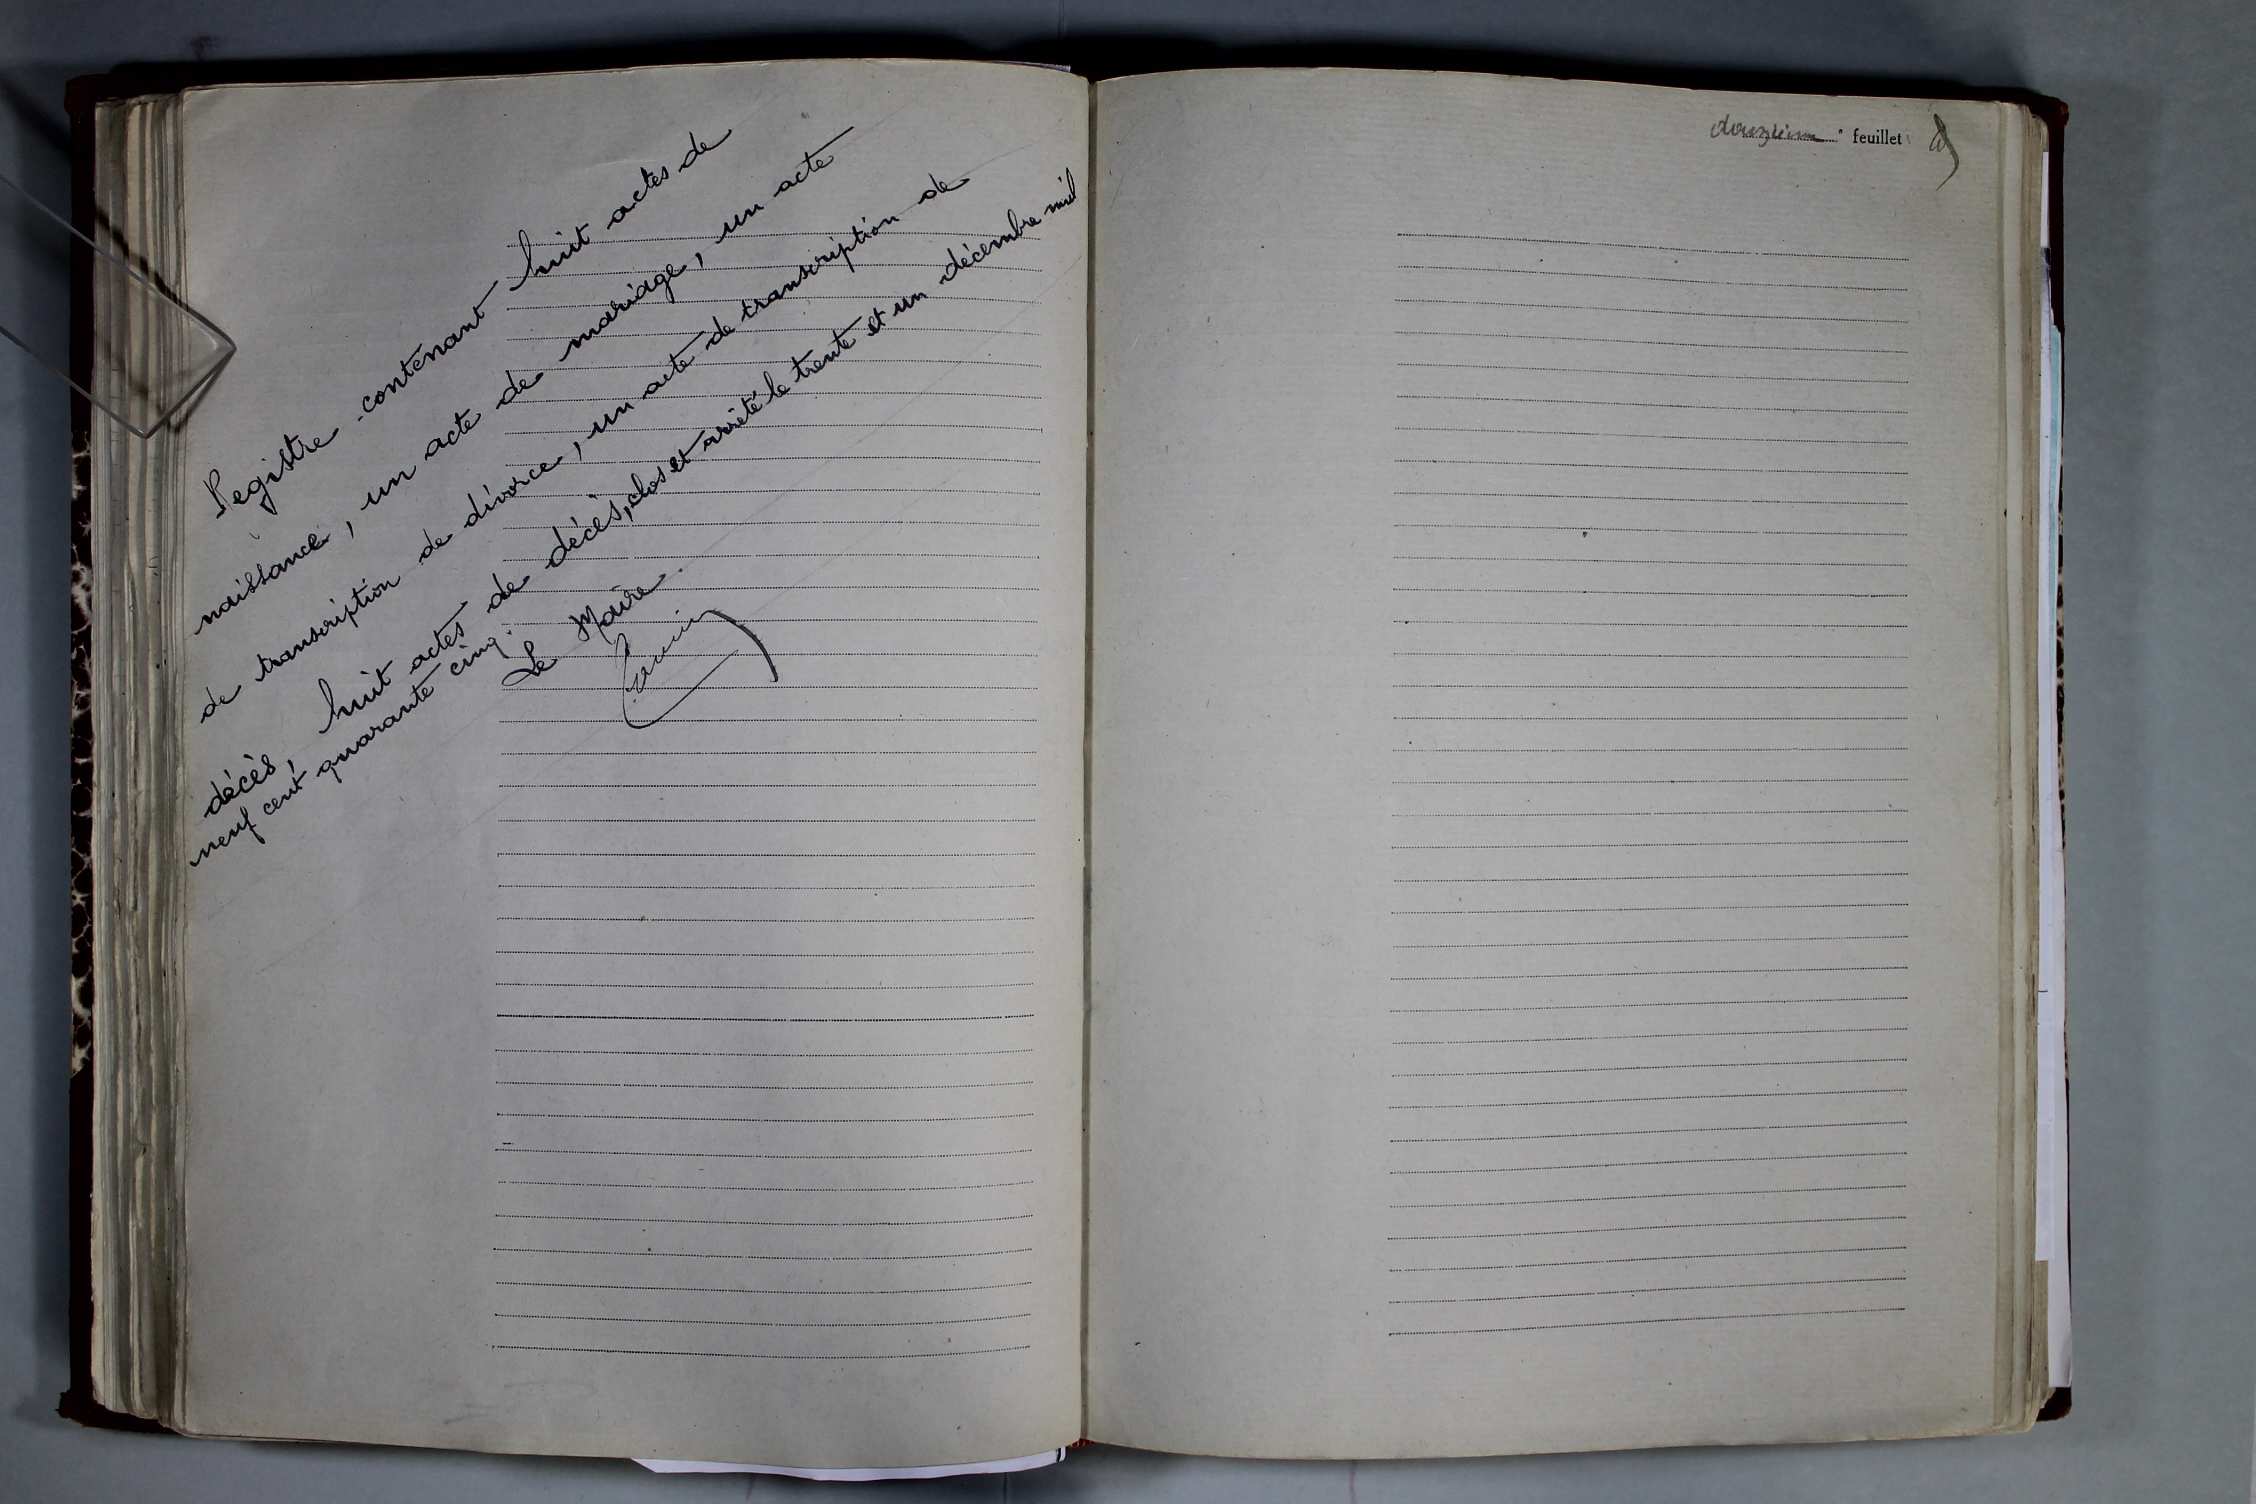 Registre contenant huit actes de
naissance, un acte de mariage, un acte
de transcription de divorce, un acte de transcription de
décès, huit actes de décès, clos et arrêté le trente et un décembre mil
neuf cent quarante cinq.
Le Maire.
douzième feuillet